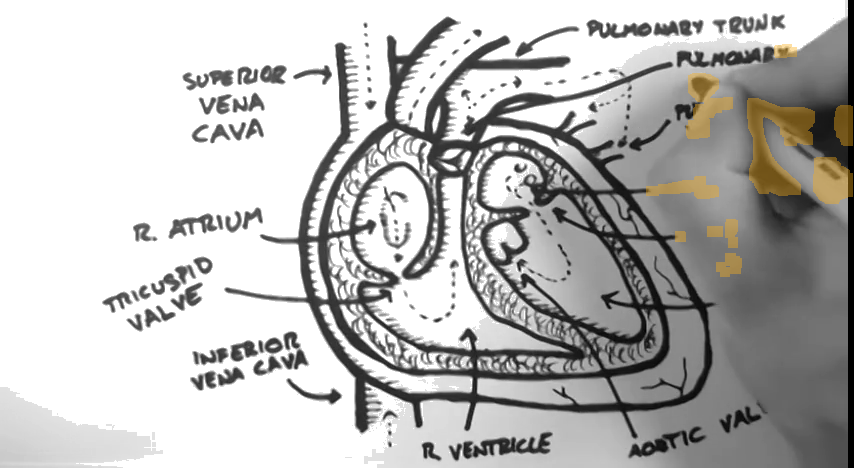 PULMONARY TRUNK
PULMONARY
SUPERIOR
VENA
CAVA
R. ATRIUM
TRICUSPID
VALVE
INFERIOR
VENA CAVA
R VENTRICLE
AORTIC